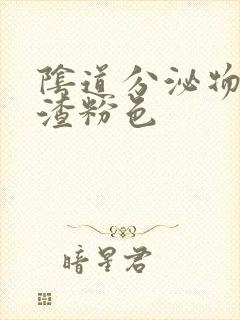 陰道分泌物
渣粉色
暗星君